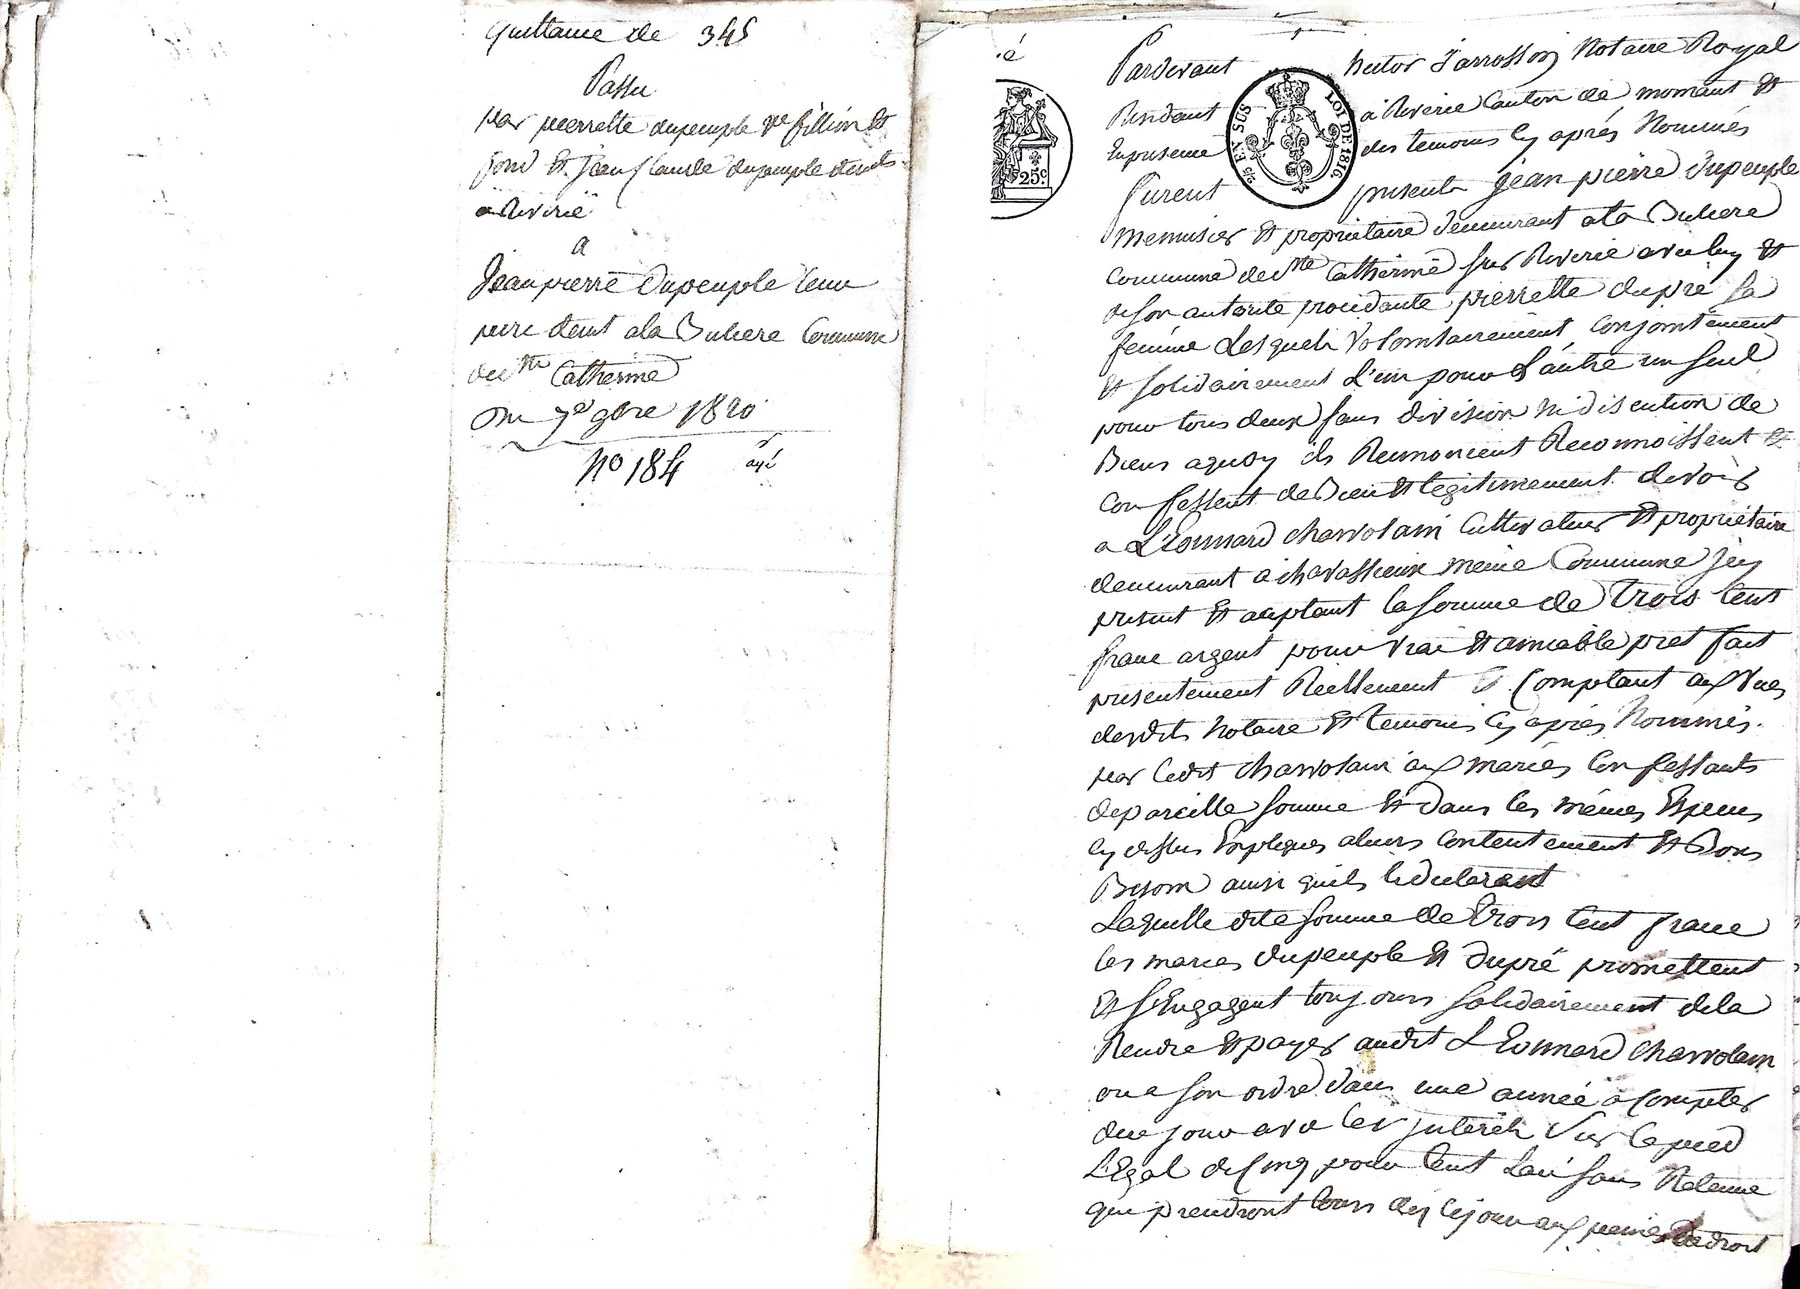 quittance de 345
Passée
par pierrette dupeuple ve fillion et
et jean Claude dupeuple demt
a Riverie
a
Jean pierre Dupeuple leur
pere demt a la Buliere Commune
de Ste Catherine
Du 7e 9bre 1820
No 184
Pardevant hector Jarrosson Notaire Royal
Residant à Riverie Canton de mornant et
En presence des temoins cy aprés Nommés
Furent presents jéan pierre Dupeuple
Menuisier et propriétaire demeurant a la Buliere
commune de Ste Catherine sur Riverie avec luy et
de son autorité procédante pierrette dupré sa
femme Lesquels Volontairement conjointement
et solidairement L'un pour L'autre un seul
pour tous deux sans division ni discution de
Biens a quoy ils Renoncent Reconnoissent et
confessent de Bien et legitimement devoir
a Léonnard charvolain Cultivateur et propriétaire
demeurant a chavassieux même Commune jcy
present et aceptant la somme de trois Cent
franc argent pour vrai et amiable pret fait
présentement Réellement et Comptant aux Vues
desdits Notaire et temoins cy aprés Nommés
par ledit charvolain aux mariés Confessants
de pareille somme et dans les mêmes Especes
cy dessus Expliqués a leurs contentement et Bons
Besoin ainsi quils le déclarent
Laquelle dite somme de trois Cent franc
les mariés dupeuple et dupré promettent
et s'Engagent toujours solidairement de la
Rendre et payer audit Léonnard charvolain
ou a son ordre dans une année a compter
de ce jour avec les jnterêts Sur le pied
Légal de Cinq pour Cent L'an sans Retenue
qui prendront Cours dès ce jour aux peines de droit
25c
LOI DE 1816